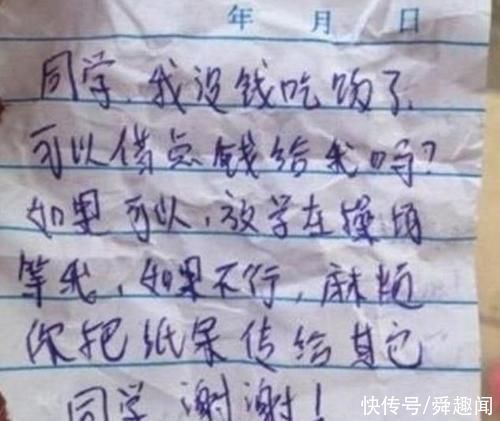 年 月 日
同学，我没钱吃饭了，
可以借点钱给我吗？
如果可以，放学在操场
等我，如果不行，麻烦
你把纸条传给其它
同学 谢谢！
快传号/舜趣闻